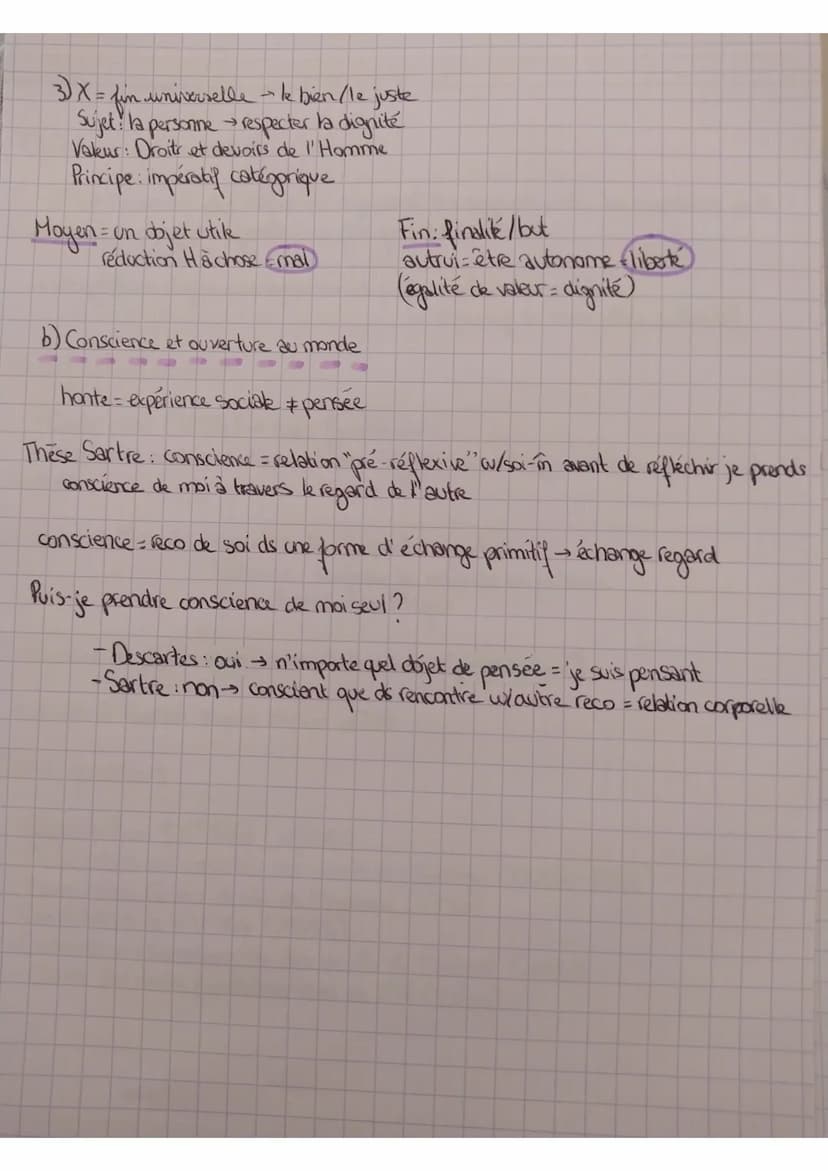 3) X = fin universelle → le bien / le juste
Sujet : la personne → respecter la dignité
Valeur : Droits et devoirs de l'Homme
Principe : impératif catégorique
Moyen = un objet utile
réduction H à chose = mal
Fin : finalité / but
autrui = être autonome = liberté
(égalité de valeur = dignité)
b) Conscience et ouverture au monde
honte = expérience sociale ≠ pensée
Thèse Sartre : conscience = relation "pré-réflexive" w/ soi-m̂ avant de réfléchir je prends
conscience de moi à travers le regard de l'autre
conscience = reco de soi ds une forme d'échange primitif → échange regard
Puis-je prendre conscience de moi seul ?
- Descartes : oui → n'importe quel objet de pensée = je suis pensant
- Sartre : non → conscient que ds rencontre w/ autre reco = relation corporelle